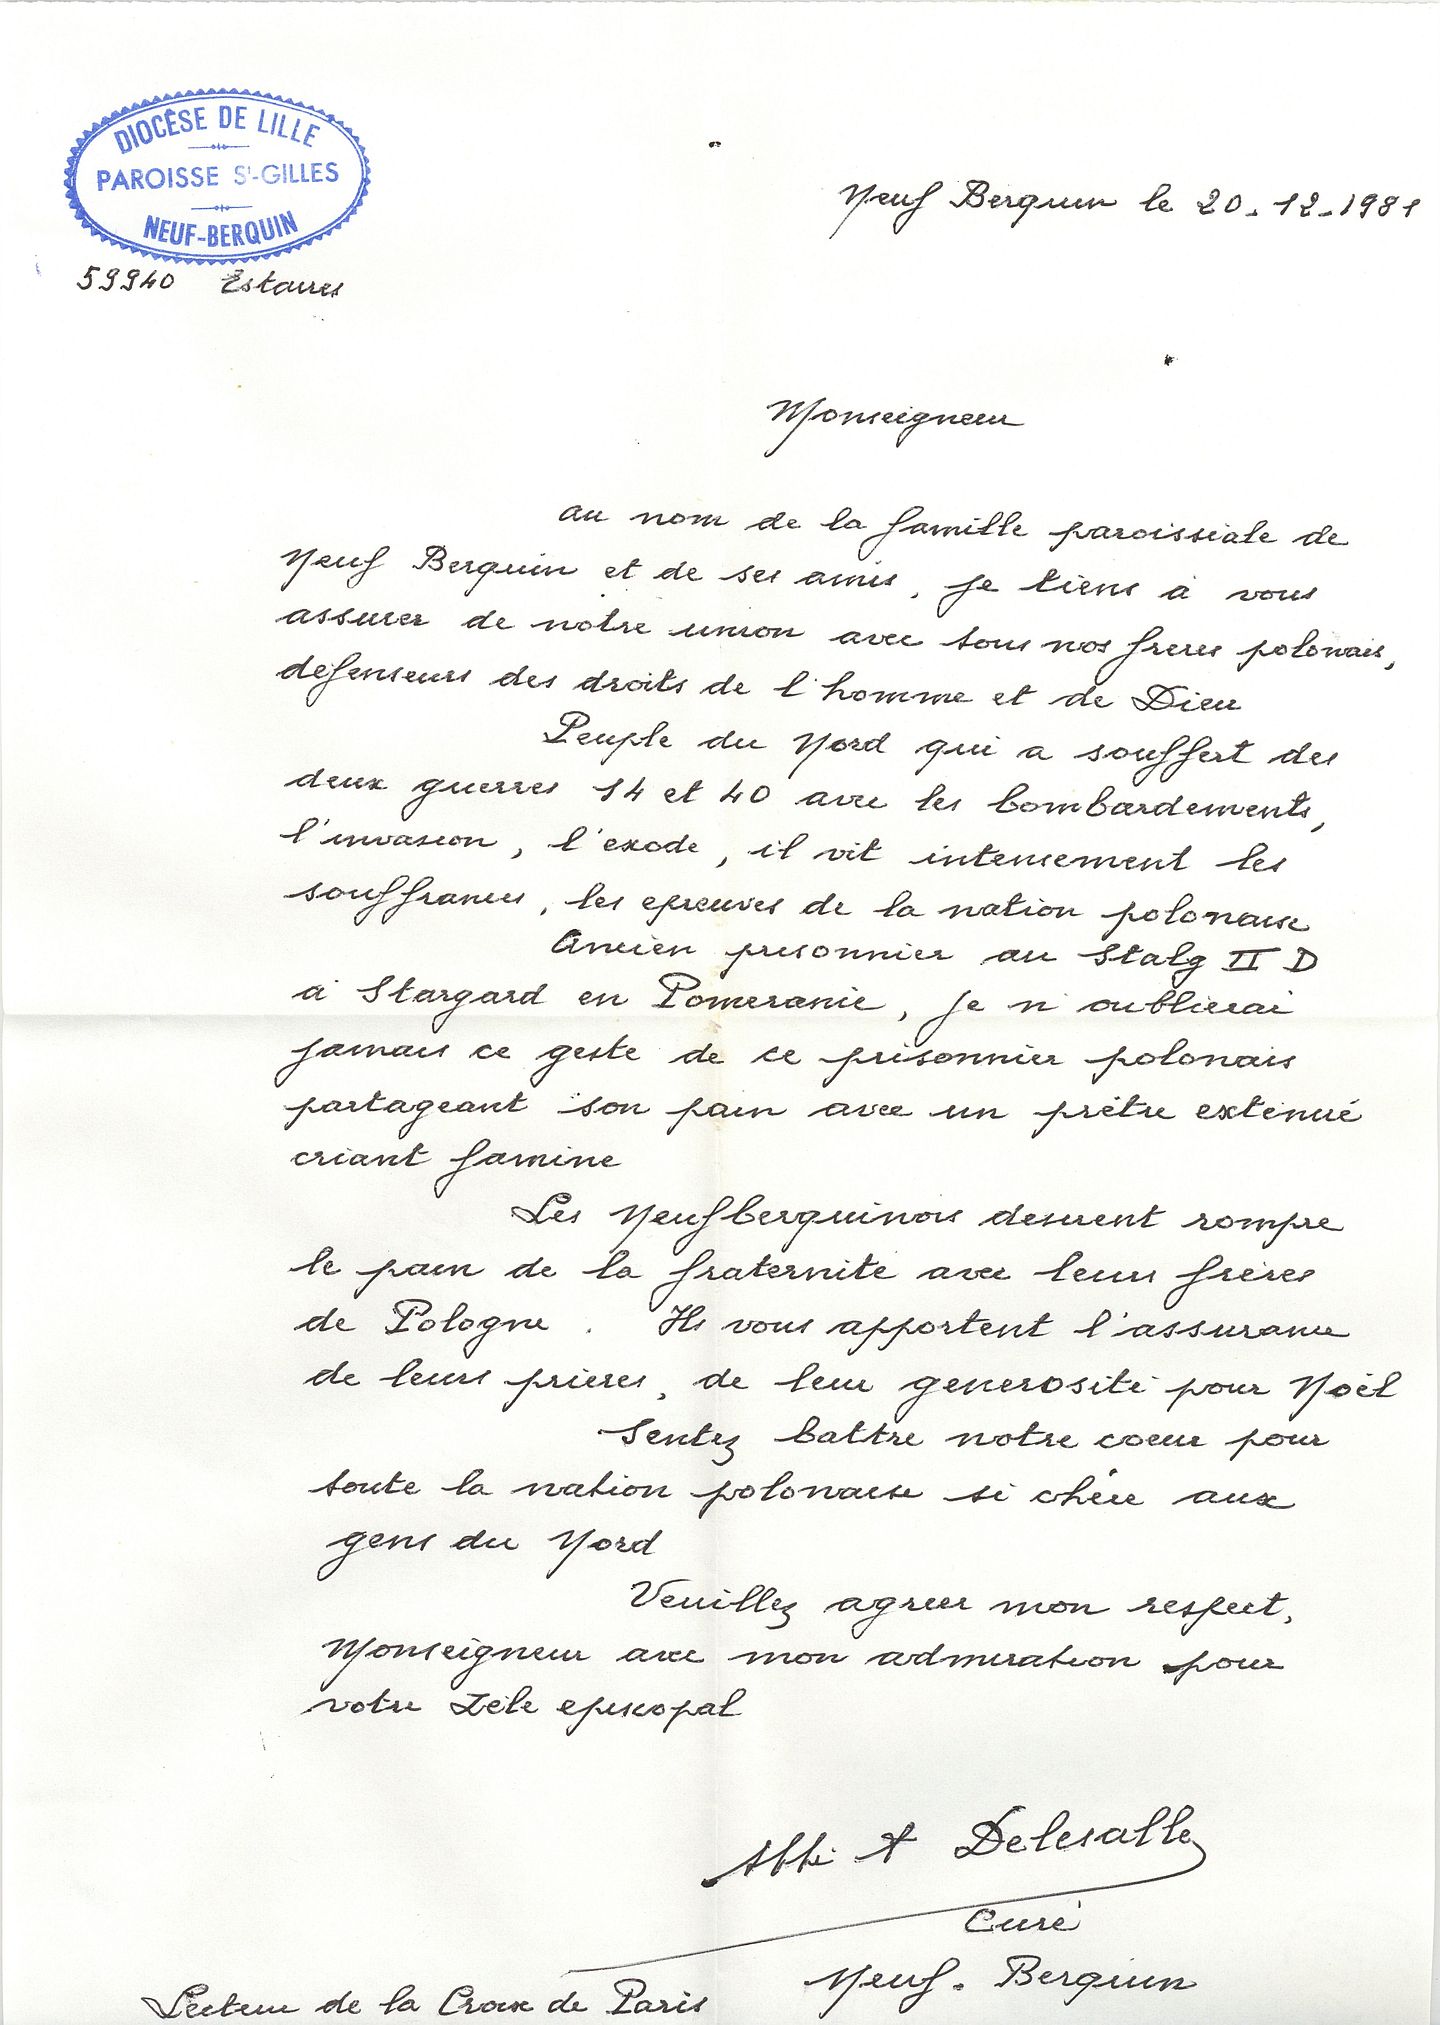 DIOCÈSE DE LILLE
PAROISSE St-GILLES
NEUF-BERQUIN
59940 Estaires
Neuf Berquin le 20-12-1981
Monseigneur
au nom de la famille paroissiale de
Neuf Berquin et de ses amis, je tiens à vous
assurer de notre union avec tous nos freres polonais,
defenseurs des droits de l'homme et de Dieu
Peuple du Nord qui a souffert des
deux guerres 14 et 40 avec les bombardements,
l'invasion, l'exode, il vit intensement les
souffrances, les epreuves de la nation polonaise
Ancien prisonnier au Stalg II D
à Stargard en Pomeranie, je n'oublierai
jamais ce geste de ce prisonnier polonais
partageant son pain avec un prêtre extenué
criant famine
Les Neufberquinois desirent rompre
le pain de la fraternite avec leurs frères
de Pologne. Ils vous apportent l'assurance
de leurs prieres, de leur generosité pour Noël
Sentez battre notre coeur pour
toute la nation polonaise si chère aux
gens du Nord
Veuillez agreer mon respect,
Monseigneur avec mon admiration pour
votre zele episcopal
Abbé A Delesalle
Curé
Neuf-Berquin
Lecteur de la Croix de Paris